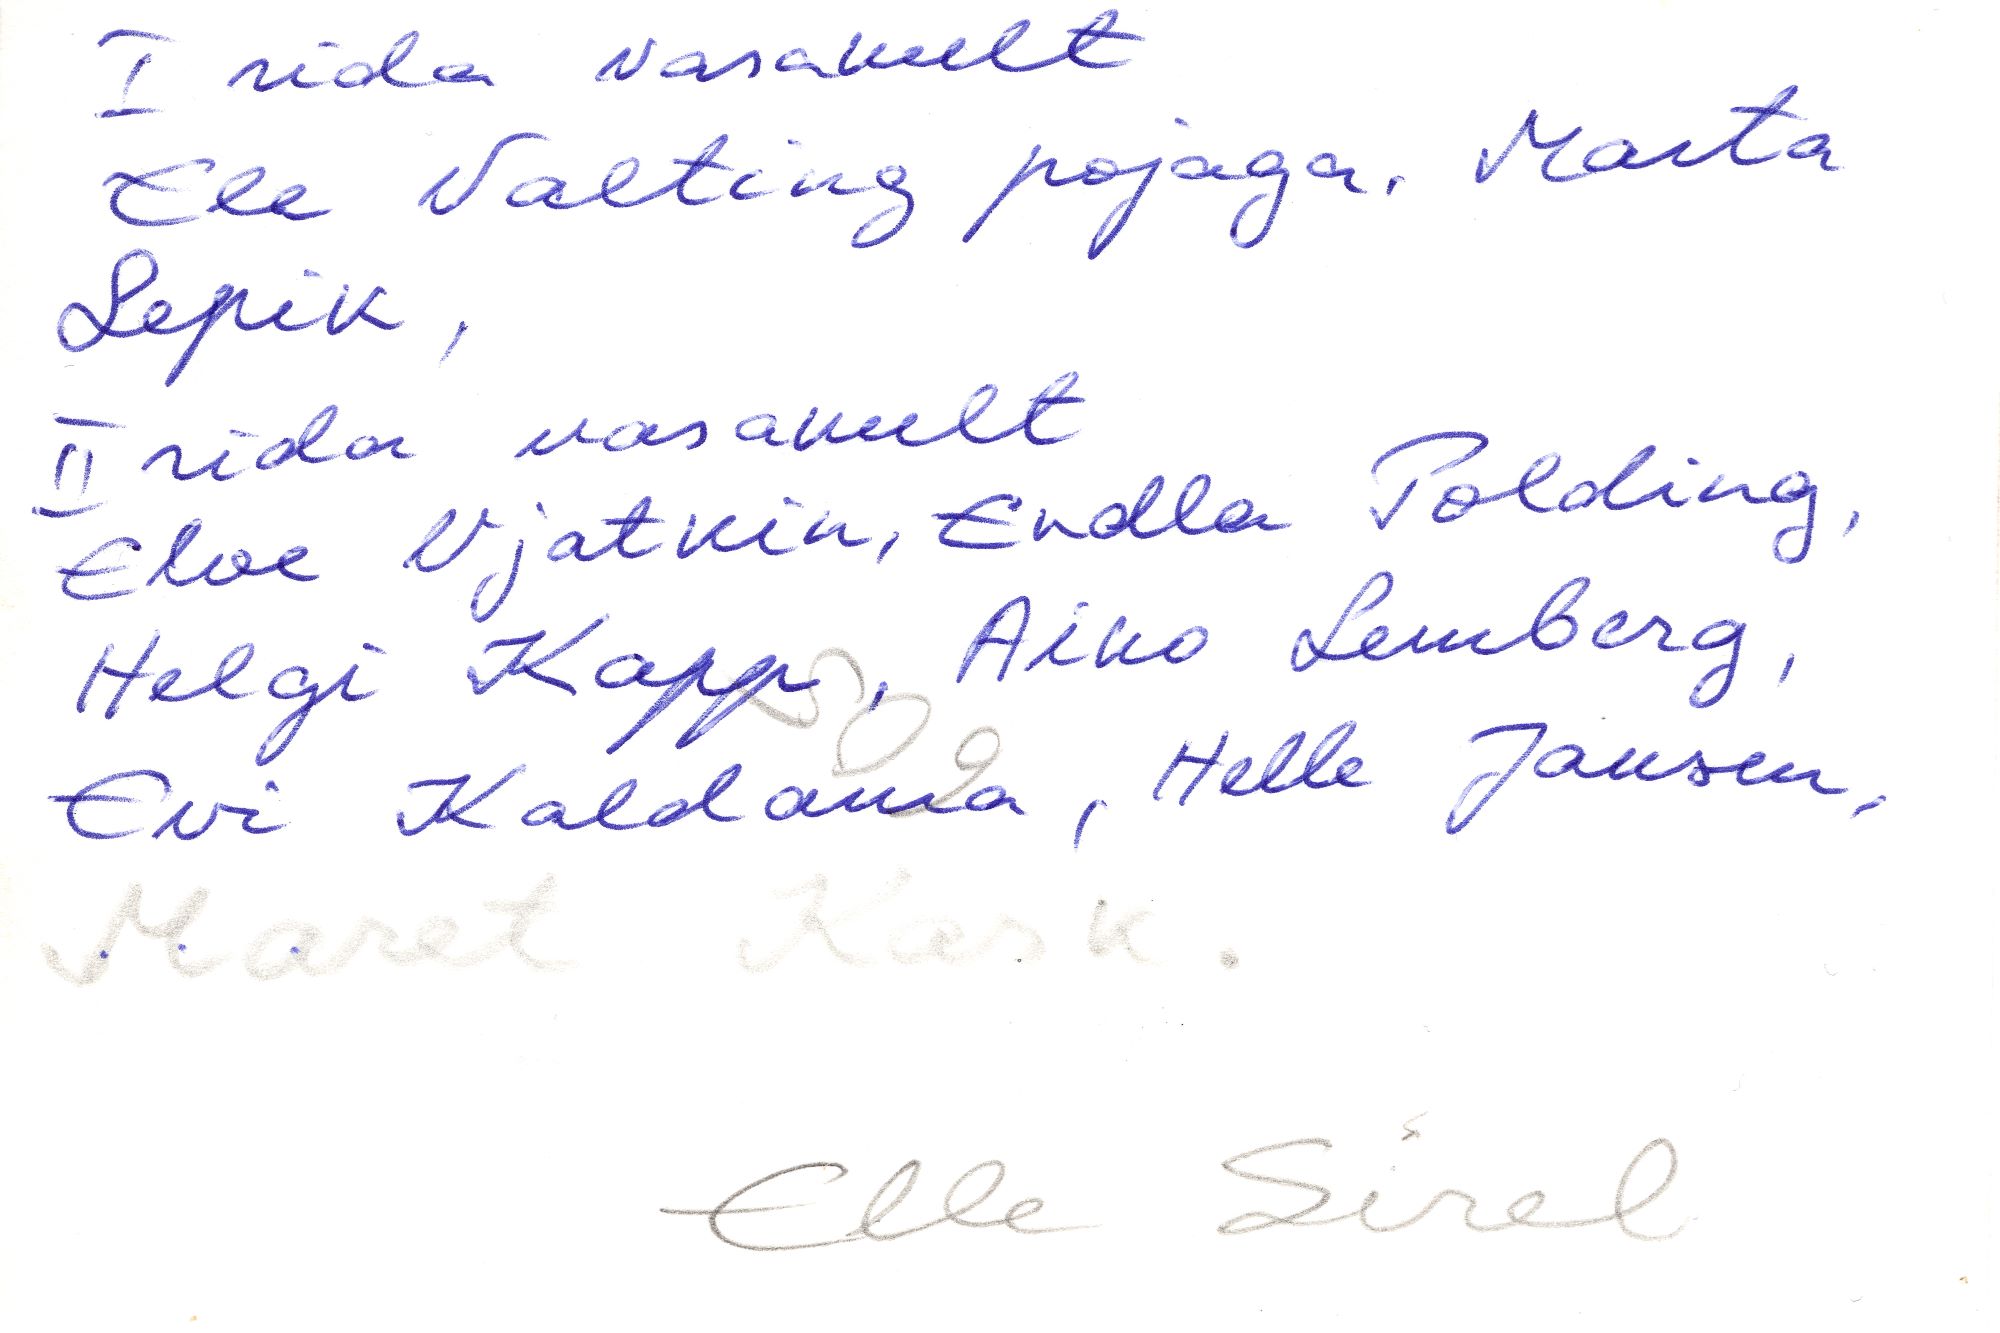 I rida vasakult
Ele Valting pojaga. Marta
Lepik,
II rida vasakult
Elve Vjatkin, Endla Polding,
Helgi Kapp, Aiko Lemberg,
Evi Kaldama, Helle Jansen,
Maret Kask.
Elle Sirel